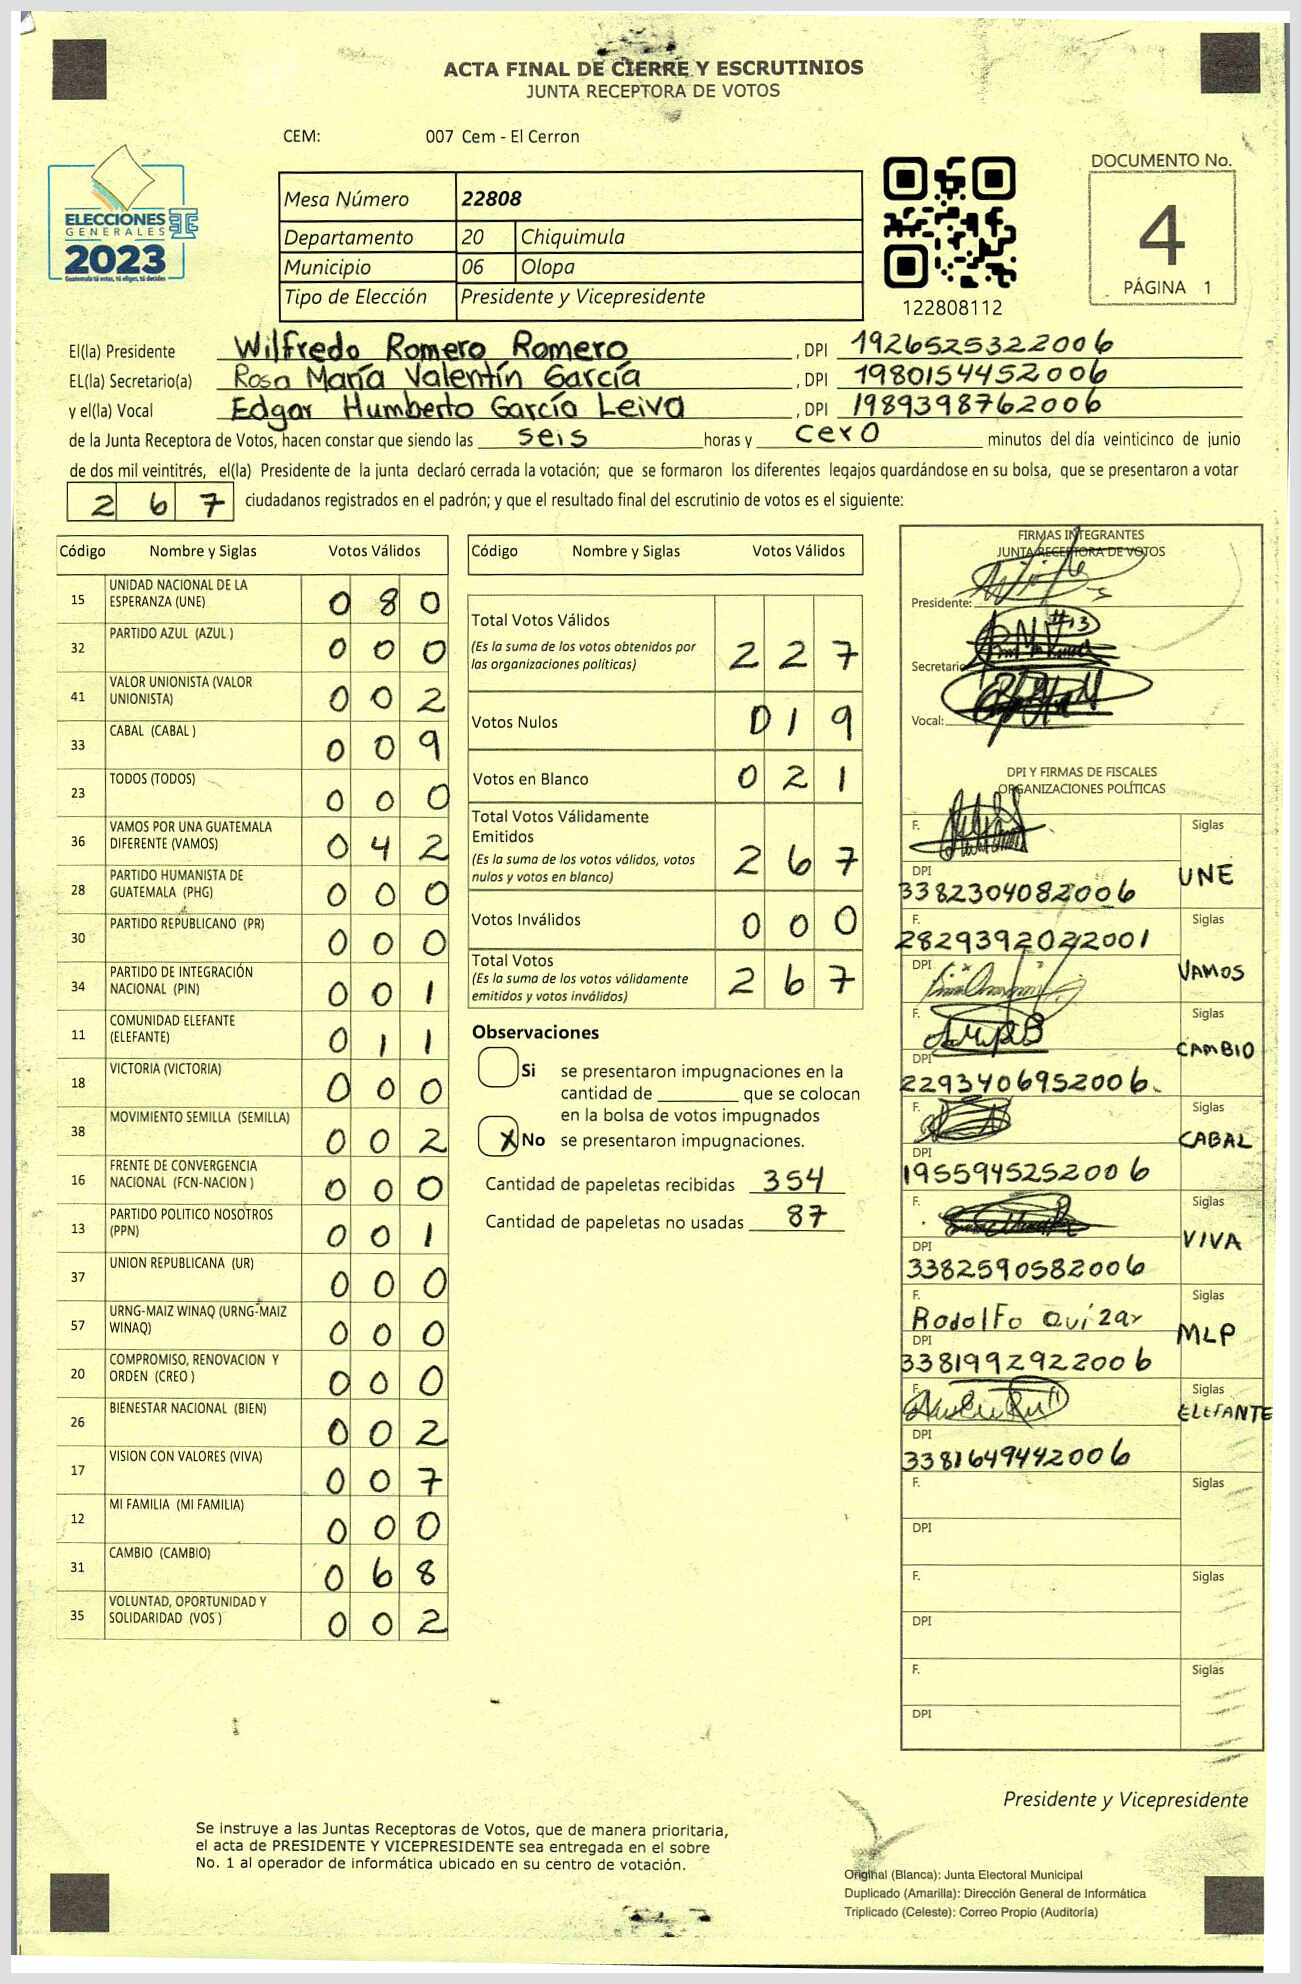 ACTA FINAL DE CIERRE Y ESCRUTINIOS
JUNTA RECEPTORA DE VOTOS
CEM: 007 Cem - El Cerron
ELECCIONES
GENERALES
2023
Guatemala tú votas, tú eliges, tú decides
Mesa Número 22808
Departamento 20 Chiquimula
Municipio 06 Olopa
Tipo de Elección Presidente y Vicepresidente
122808112
DOCUMENTO No.
4
PÁGINA 1
El(la) Presidente Wilfredo Romero Romero , DPI 1926525322006
EL(la) Secretario(a) Rosa María Valentín García , DPI 1980154452006
y el(la) Vocal Edgar Humberto García Leiva , DPI 1989398762006
de la Junta Receptora de Votos, hacen constar que siendo las seis horas y cero minutos del día veinticinco de junio
de dos mil veintitrés, el(la) Presidente de la junta declaró cerrada la votación; que se formaron los diferentes legajos quardándose en su bolsa, que se presentaron a votar
2 6 7 ciudadanos registrados en el padrón; y que el resultado final del escrutinio de votos es el siguiente:
Código Nombre y Siglas Votos Válidos
15 UNIDAD NACIONAL DE LA ESPERANZA (UNE) 0 8 0
32 PARTIDO AZUL (AZUL ) 0 0 0
41 VALOR UNIONISTA (VALOR UNIONISTA) 0 0 2
33 CABAL (CABAL ) 0 0 9
23 TODOS (TODOS) 0 0 0
36 VAMOS POR UNA GUATEMALA DIFERENTE (VAMOS) 0 4 2
28 PARTIDO HUMANISTA DE GUATEMALA (PHG) 0 0 0
30 PARTIDO REPUBLICANO (PR) 0 0 0
34 PARTIDO DE INTEGRACIÓN NACIONAL (PIN) 0 0 1
11 COMUNIDAD ELEFANTE (ELEFANTE) 0 1 1
18 VICTORIA (VICTORIA) 0 0 0
38 MOVIMIENTO SEMILLA (SEMILLA) 0 0 2
16 FRENTE DE CONVERGENCIA NACIONAL (FCN-NACION ) 0 0 0
13 PARTIDO POLITICO NOSOTROS (PPN) 0 0 1
37 UNION REPUBLICANA (UR) 0 0 0
57 URNG-MAIZ WINAQ (URNG-MAIZ WINAQ) 0 0 0
20 COMPROMISO, RENOVACION Y ORDEN (CREO ) 0 0 0
26 BIENESTAR NACIONAL (BIEN) 0 0 2
17 VISION CON VALORES (VIVA) 0 0 7
12 MI FAMILIA (MI FAMILIA) 0 0 0
31 CAMBIO (CAMBIO) 0 6 8
35 VOLUNTAD, OPORTUNIDAD Y SOLIDARIDAD (VOS ) 0 0 2
Código Nombre y Siglas Votos Válidos
Total Votos Válidos
(Es la suma de los votos obtenidos por las organizaciones políticas) 2 2 7
Votos Nulos 0 1 9
Votos en Blanco 0 2 1
Total Votos Válidamente Emitidos
(Es la suma de los votos válidos, votos nulos y votos en blanco) 2 6 7
Votos Inválidos 0 0 0
Total Votos
(Es la suma de los votos válidamente emitidos y votos inválidos) 2 6 7
Observaciones
Si se presentaron impugnaciones en la
cantidad de ________ que se colocan
en la bolsa de votos impugnados
X No se presentaron impugnaciones.
Cantidad de papeletas recibidas 354
Cantidad de papeletas no usadas 87
FIRMAS INTEGRANTES
JUNTA RECEPTORA DE VOTOS
Presidente:
Secretario
Vocal:
DPI Y FIRMAS DE FISCALES
ORGANIZACIONES POLÍTICAS
F. Siglas
DPI UNE
3382304082006
F. Siglas
2829392022001
DPI VAMOS
F. Siglas
DPI CAMBIO
2293406952006
F. Siglas
DPI CABAL
1955945252006
F. Siglas
DPI VIVA
3382590582006
F. Siglas
Rodolfo Quizar
DPI MLP
3381992922006
F. Siglas
ELEFANTE
DPI
3381649442006
F. Siglas
DPI
F. Siglas
DPI
F. Siglas
DPI
Presidente y Vicepresidente
Se instruye a las Juntas Receptoras de Votos, que de manera prioritaria,
el acta de PRESIDENTE Y VICEPRESIDENTE sea entregada en el sobre
No. 1 al operador de informática ubicado en su centro de votación.
Original (Blanca): Junta Electoral Municipal
Duplicado (Amarilla): Dirección General de Informática
Triplicado (Celeste): Correo Propio (Auditoría)